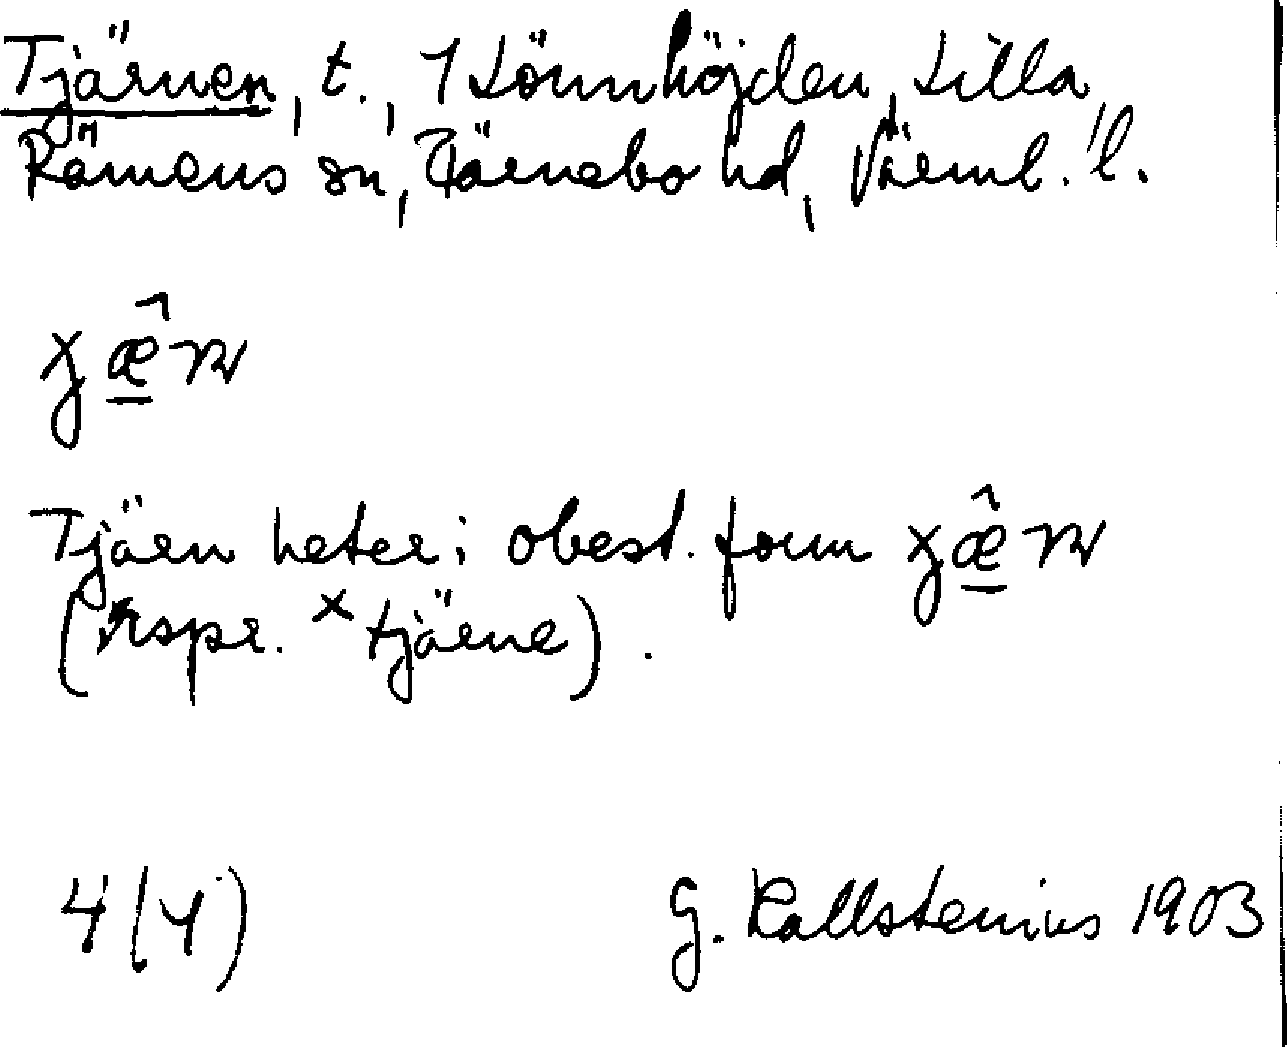 Tjärnen, t., 1 Lönnhöjden, Lilla
Rämens sn, Färnebo hd, Värml. l.
Tjärn heter i obest. form
(rspr. ˣtjärne).
4 (4)
G. Kallstenius 1903